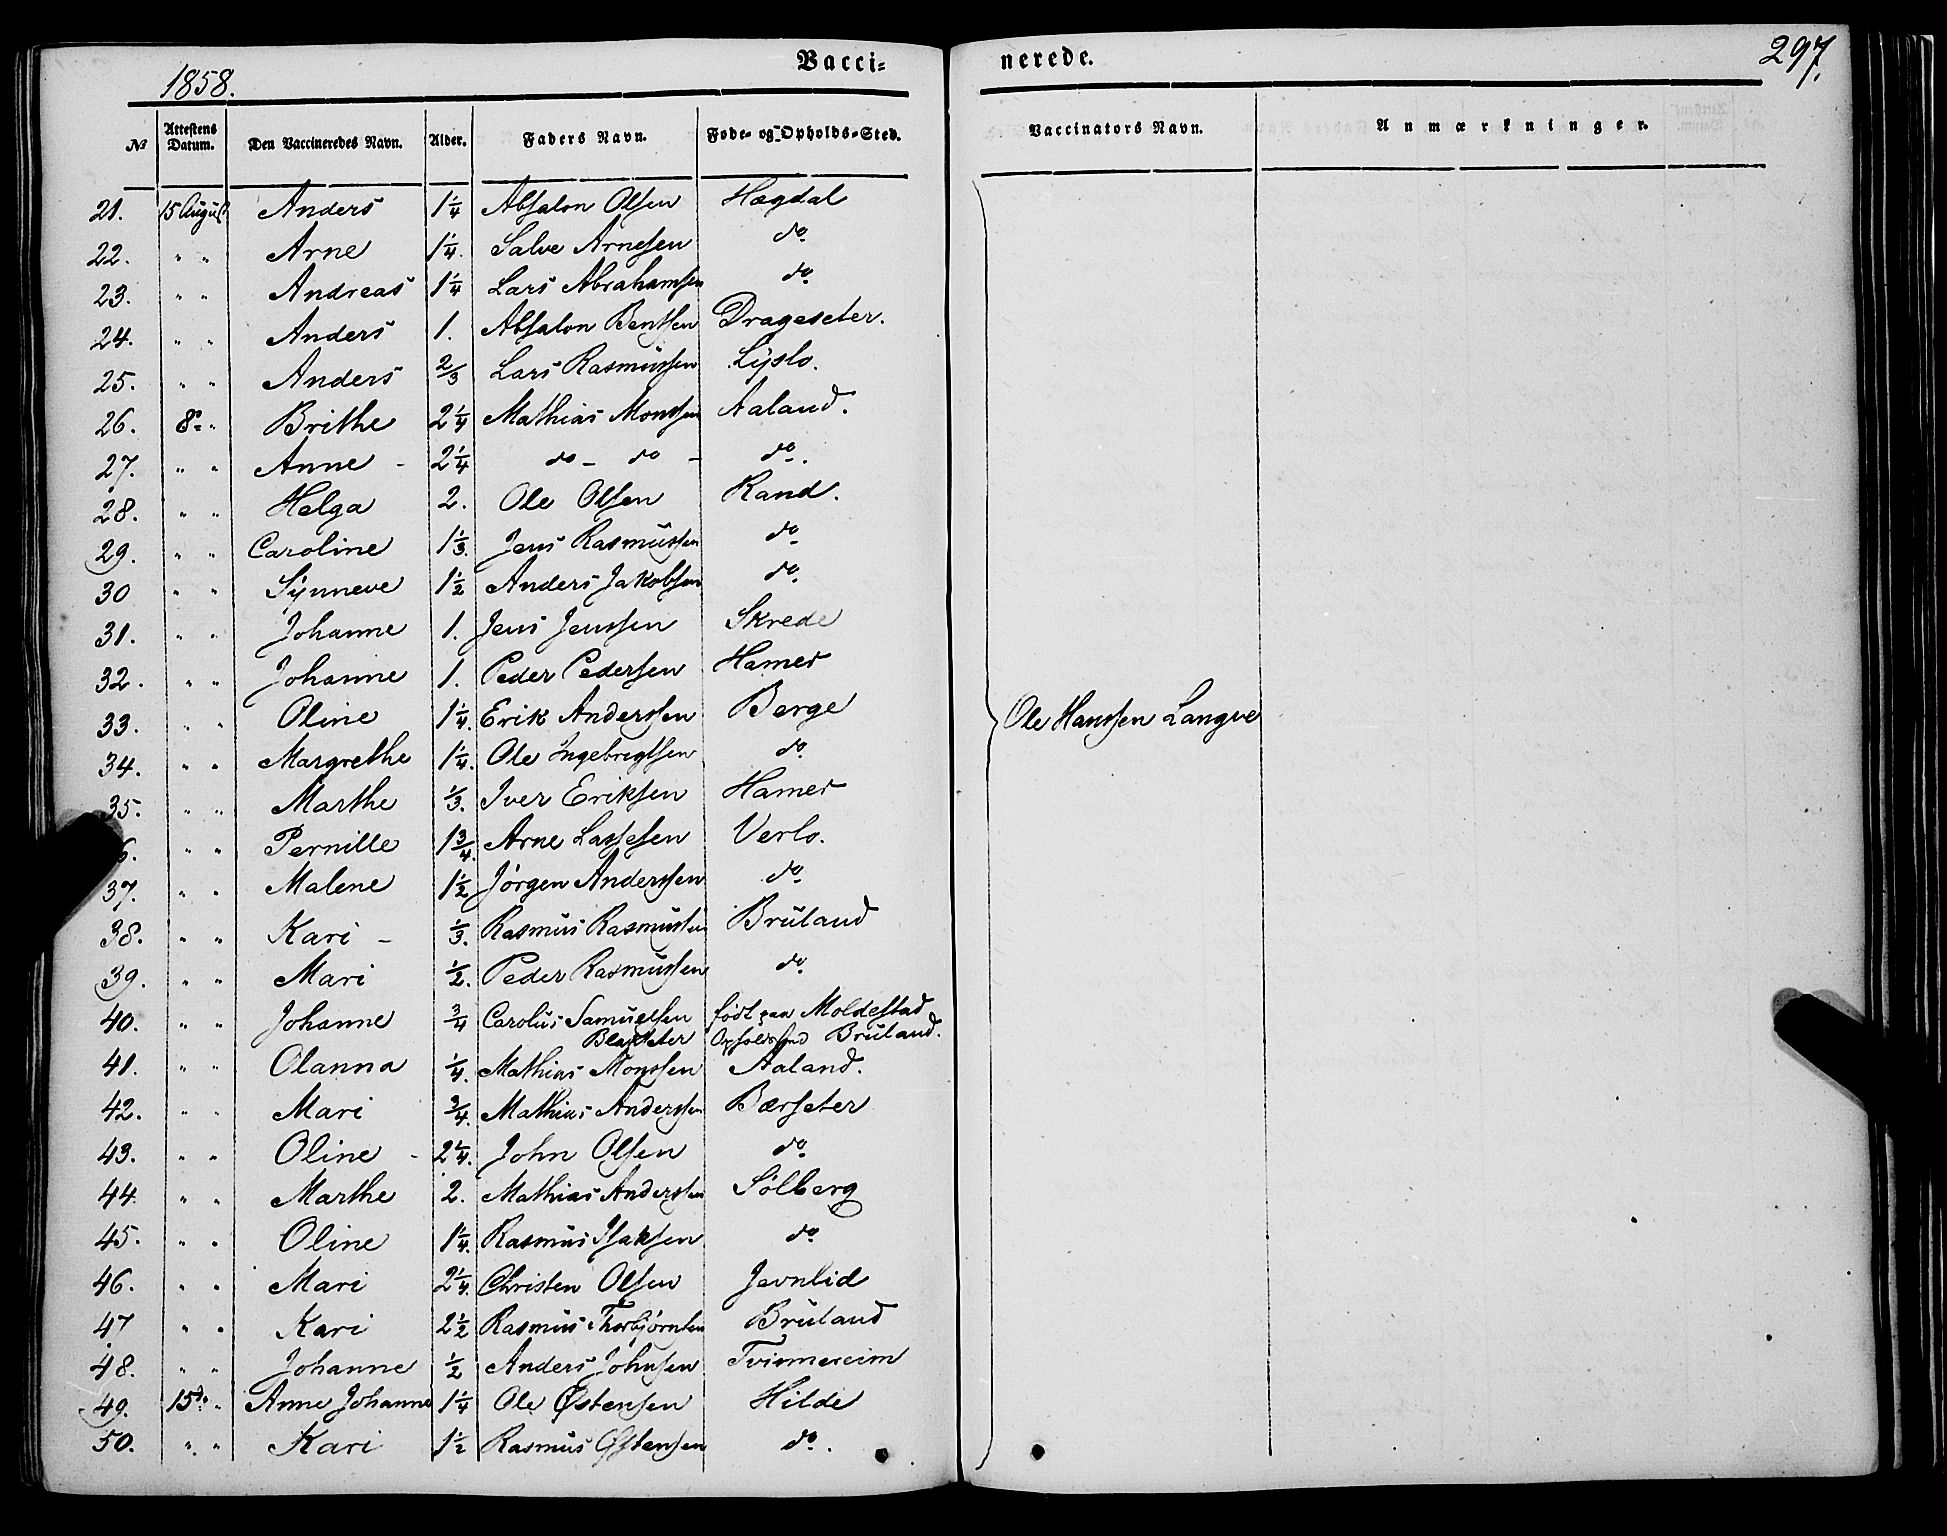 1858. Vacci= nerede. 297.
№ Attestens Datum. Den Vaccineredes Navn. Alder. Faders Navn. Føde- og Opholds-Sted. Vaccinators Navn. Anmærkninger.
21. 15 August Anders 1 1/4 Absalon Olsen Hægdal
22. " " Arne 1 1/4. Salve Arnesen do
23. " " Andreas 1 1/4 Lars Abrahamsen do
24. " " Anders 1. Absalon Bentsen Drageseter.
25. " " Anders 2/3 Lars Rasmussen Lyslo.
26. 8de " Brithe 2 1/4 Mathias Monssen Aaland.
27. " " Anne - 2 1/4 do - do - do.
28. " " Helga 2. Ole Olsen Rand.
29. " " Caroline 1 1/3. Jens Rasmussen do
30 " " Synneve 1 1/2 Anders Jakobsen do
31. " " Johanne 1. Jens Jenssen Skrede
32. " " Johanne 1. Peder Pedersen Hamer
33. " " Oline 1 1/4. Erik Anderssen Berge Ole Hanssen Langve
34. " " Margrethe 1 1/4. Ole Ingebrigtsen do
35. " " Marthe 1/3. Iver Eriksen Hamer
6. " " Pernille 1 3/4. Arne Lassesen Verlo.
37. " " Malene 1 1/2 Jørgen Anderssen do
38. " " Kari - 1/3. Rasmus Rasmussen Bruland
39. " " Mari 1/2. Peder Rasmussen do
40. " " Johanne 3/4 Carolus Samuelsen født paa Moldestad
Opholdssted Bruland.
41. " " Olanna 1/4. Mathias Monssen Aaland.
42. " " Mari 3/4. Mathias Anderssen Bærseter
43. " " Oline - 2 1/4. John Olsen do
44. " " Marthe 2. Mathias Anderssen Sølberg
45. " " Oline 1 1/4. Rasmus Isaksen do
46. " " Mari 2 1/4. Christen Olsen Jevnlid
47 " " Kari 2 1/2 Rasmus Thorbjørnsen Bruland
48. " " Johanne 1/2 Anders Johnsen Tvinnereim
49. 15de " Anne Johanne 1 1/4 Ole Østensen Hilde
50. " " Kari 1 1/2 Rasmus Østensen do.